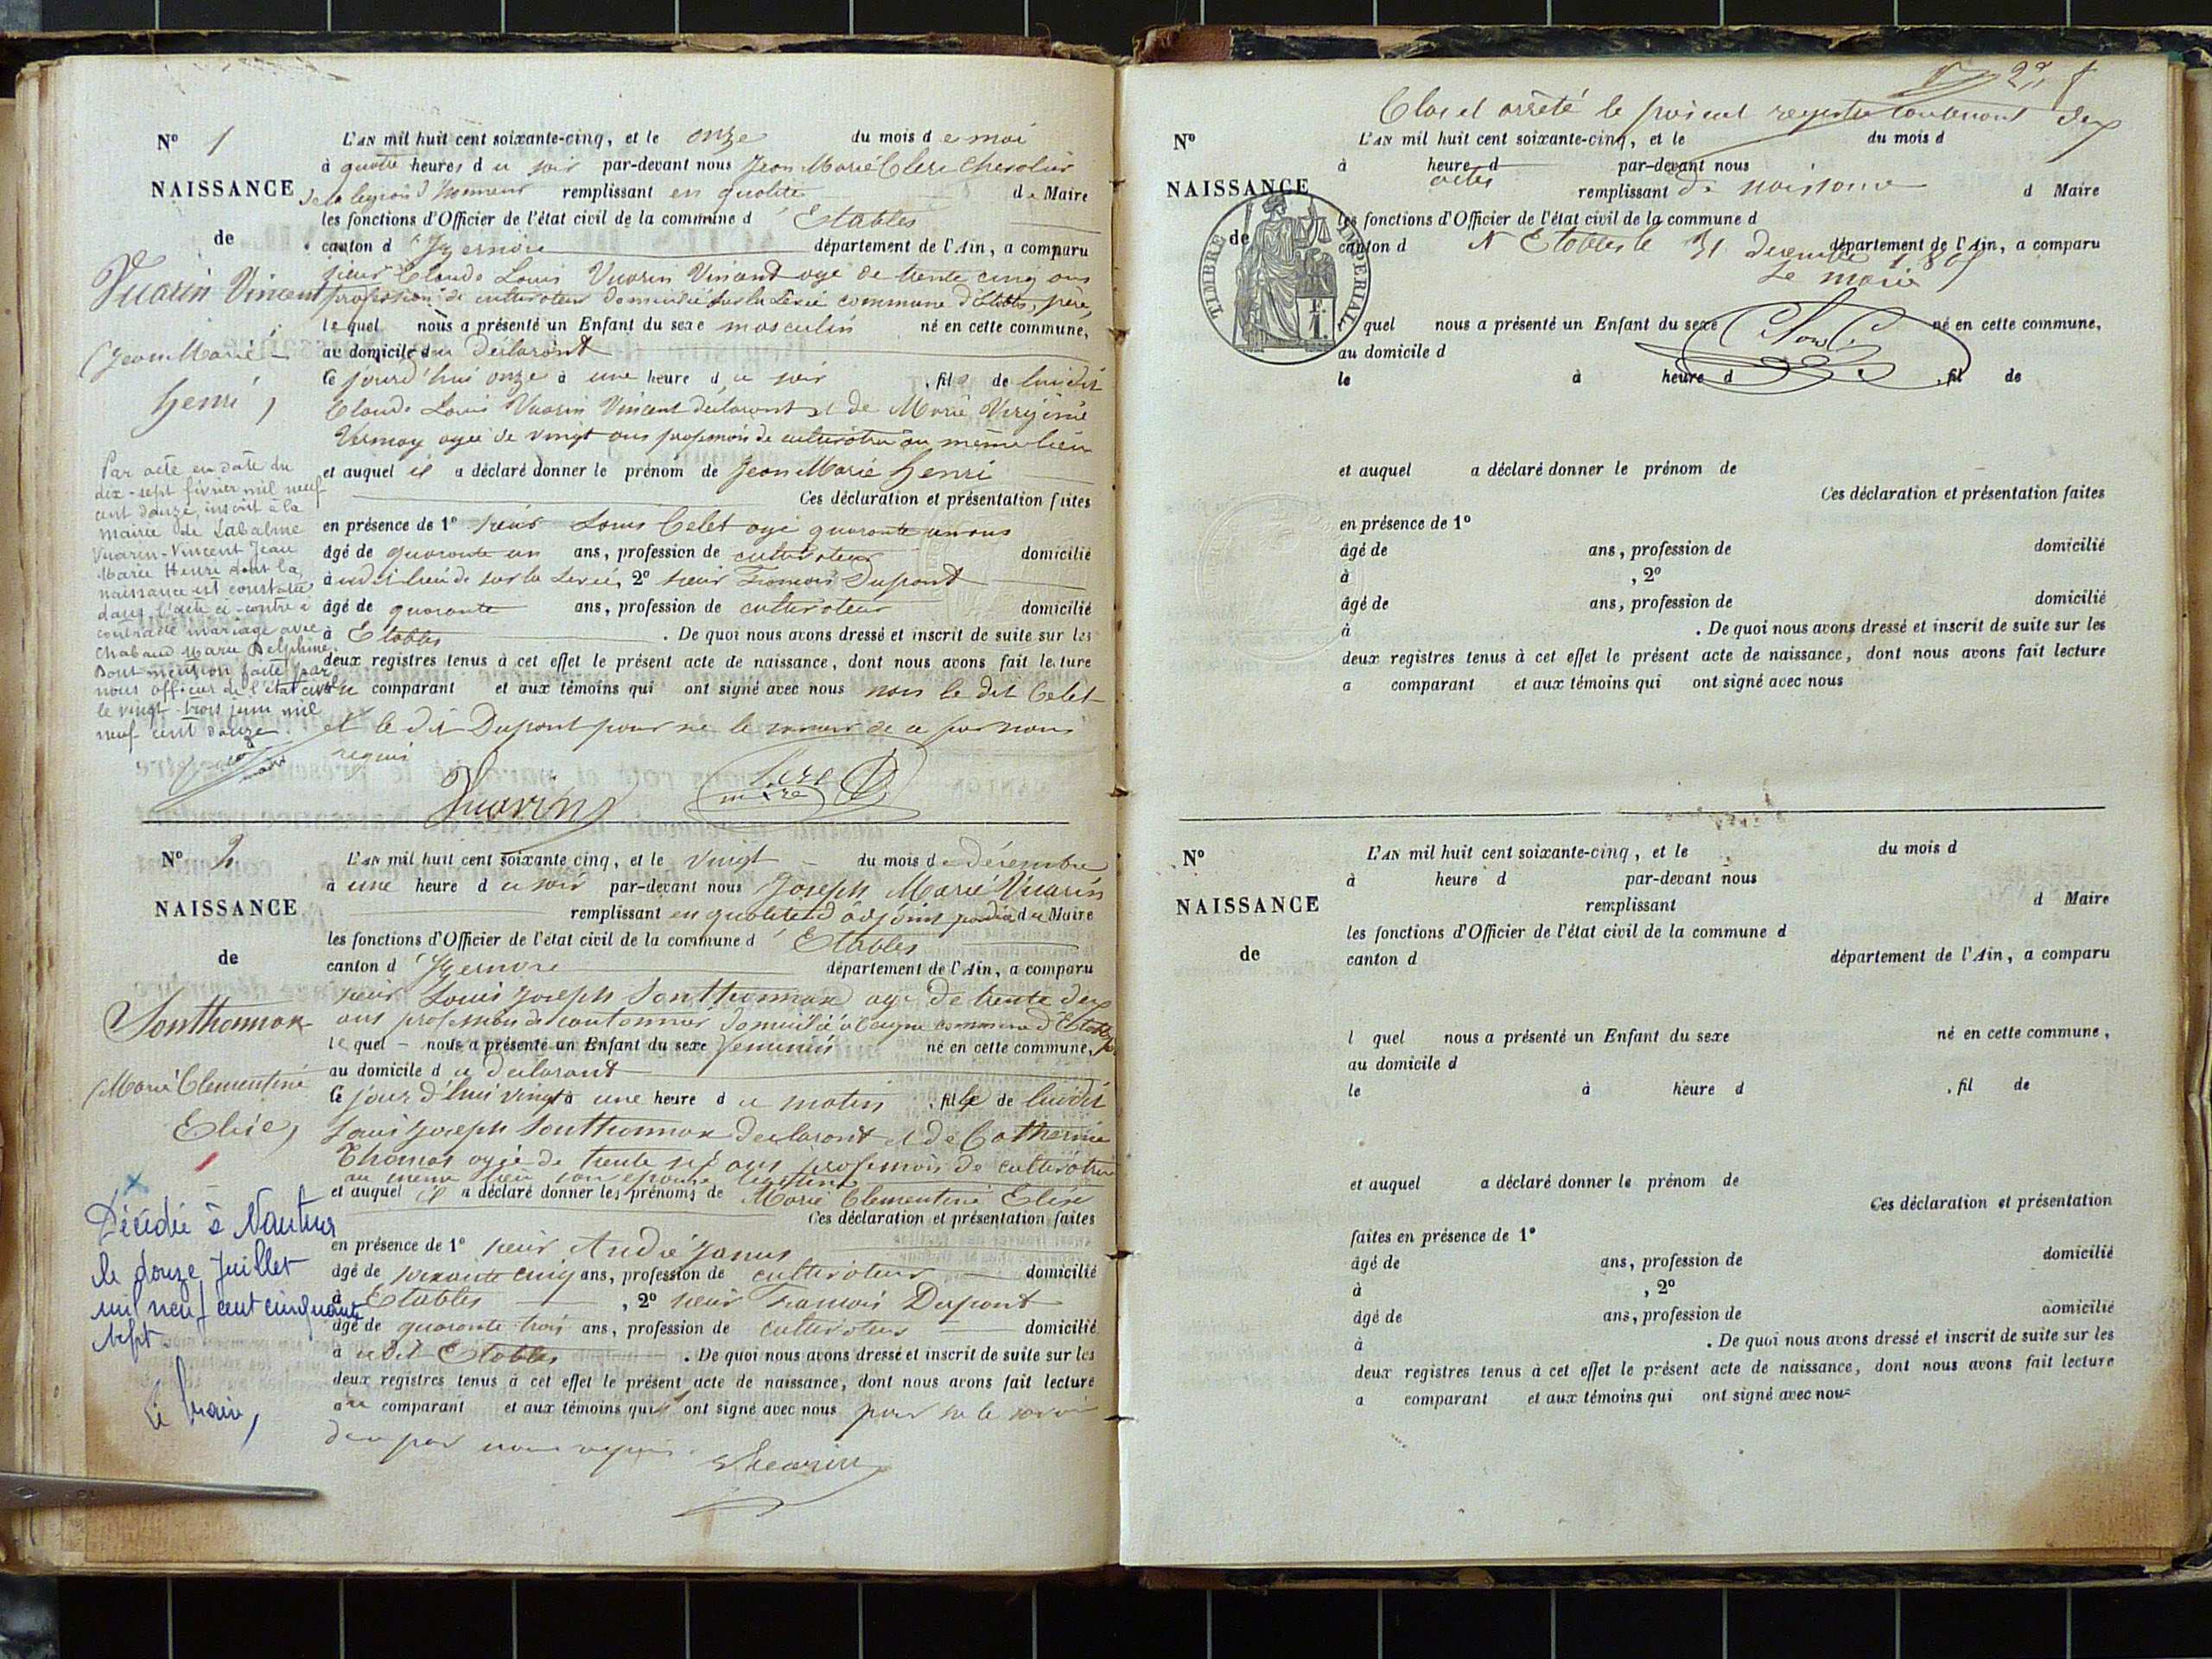 Nº 1
NAISSANCE
de
Vuarin Vincent
(Jean Marie
henri)
L'AN mil huit cent soixante-cinq, et le onze du mois de mai
à quatre heures du soir par-devant nous Jean Marie Clerc Chevalier
de la legion d'honneur remplissant en qualité de Maire
les fonctions d'Officier de l'état civil de la commune d'Etables
canton d'Yzernore département de l'Ain, a comparu
sieur Claude Louis Vuarin Vincent agé de trente cinq ans
profession de cultivateur domicilié sur la commune d'Etables, père,
lequel nous a présenté un Enfant du sexe masculin né en cette commune,
au domicile du declarant
ce jourd'hui onze à une heure du soir, fils de lui dit
Claude Louis Vuarin Vincent declarant et de Marie Virginie
agée de vingt ans profession de cultivatrice au même lieu
et auquel il a déclaré donner le prénom de Jean Marie henri
Ces déclaration et présentation faites
en présence de 1º sieur Louis Celet agé quarante un ans
âgé de quarante un ans, profession de cultivateur domicilié
audit lieu de sur la 2º sieur Francois Dupont
âgé de quarante ans, profession de cultivateur domicilié
à Etables. De quoi nous avons dressé et inscrit de suite sur les
deux registres tenus à cet effet le présent acte de naissance, dont nous avons fait lecture
au comparant et aux témoins qui ont signé avec nous non le dit Celet
et le dit Dupont pour ne le savoir de ce par nous
requis
Vuarin Clerc
maire
Par acte en date du
dix-sept février mil neuf
cent douze, inscrit à la
mairie de Labalme
Vuarin-Vincent Jean
Marie Henri dont la
naissance est constatée
dans l'acte ci-contre a
contracté mariage avec
Chabaud Marie Delphine.
Dont mention faite par
nous officier de l'état civil
le vingt-trois juin mil
neuf cent douze.
Nº 2
NAISSANCE
de
Sonthonnax
(Marie Clementine
Elise)
L'AN mil huit cent soixante cinq, et le vingt du mois de Décembre
à une heure du soir par-devant nous Joseph Marie Vuarin
remplissant en qualité d'adjoint du Maire
les fonctions d'Officier de l'état civil de la commune d'Etables
canton d'Yzernore département de l'Ain, a comparu
sieur Louis Joseph Sonthonnax agé de trente deux
ans profession de cantonnier domicilié à commune d'Etables
lequel nous a présenté un Enfant du sexe feminin né en cette commune,
au domicile du declarant
ce jour d'hui vingt à une heure du matin, fille de lui dit
Louis Joseph Sonthonnax declarant et de Catherine
Thomas agée de trente ans profession de cultivatrice
au meme lieu son epouse legitime
et auquel il a déclaré donner les prénoms de Marie Clementine Elise
Ces déclaration et présentation faites
en présence de 1º sieur André
âgé de soixante cinq ans, profession de cultivateur domicilié
à Etables, 2º sieur Francois Dupont
âgé de quarante trois ans, profession de cultivateur domicilié
à udit Etables. De quoi nous avons dressé et inscrit de suite sur les
deux registres tenus à cet effet le présent acte de naissance, dont nous avons fait lecture
au comparant et aux témoins qui ont signé avec nous pour ne le savoir
de ce par nous requis.
Vuarin
Décédée à Nantua
le douze Juillet
mil neuf cent cinquante
sept.
Le Maire,
Clos et arrêté le présent registre contenant deux
actes de naissance
A Etables le 31 decembre 1865
Le maire
Clerc
TIMBRE IMPERIAL
Nº
NAISSANCE
de
L'AN mil huit cent soixante-cinq, et le du mois d
à heure d par-devant nous
remplissant d Maire
les fonctions d'Officier de l'état civil de la commune d
canton d département de l'Ain, a comparu
l quel nous a présenté un Enfant du sexe né en cette commune,
au domicile d
le à heure d , fil de
et auquel a déclaré donner le prénom de
Ces déclaration et présentation faites
en présence de 1º
âgé de ans, profession de domicilié
à , 2º
âgé de ans, profession de domicilié
à . De quoi nous avons dressé et inscrit de suite sur les
deux registres tenus à cet effet le présent acte de naissance, dont nous avons fait lecture
a comparant et aux témoins qui ont signé avec nous
Nº
NAISSANCE
de
L'AN mil huit cent soixante-cinq, et le du mois d
à heure d par-devant nous
remplissant d Maire
les fonctions d'Officier de l'état civil de la commune d
canton d département de l'Ain, a comparu
l quel nous a présenté un Enfant du sexe né en cette commune,
au domicile d
le à heure d , fil de
et auquel a déclaré donner le prénom de
Ces déclaration et présentation
faites en présence de 1º
âgé de ans, profession de domicilié
à , 2º
âgé de ans, profession de domicilié
à . De quoi nous avons dressé et inscrit de suite sur les
deux registres tenus à cet effet le présent acte de naissance, dont nous avons fait lecture
a comparant et aux témoins qui ont signé avec nous